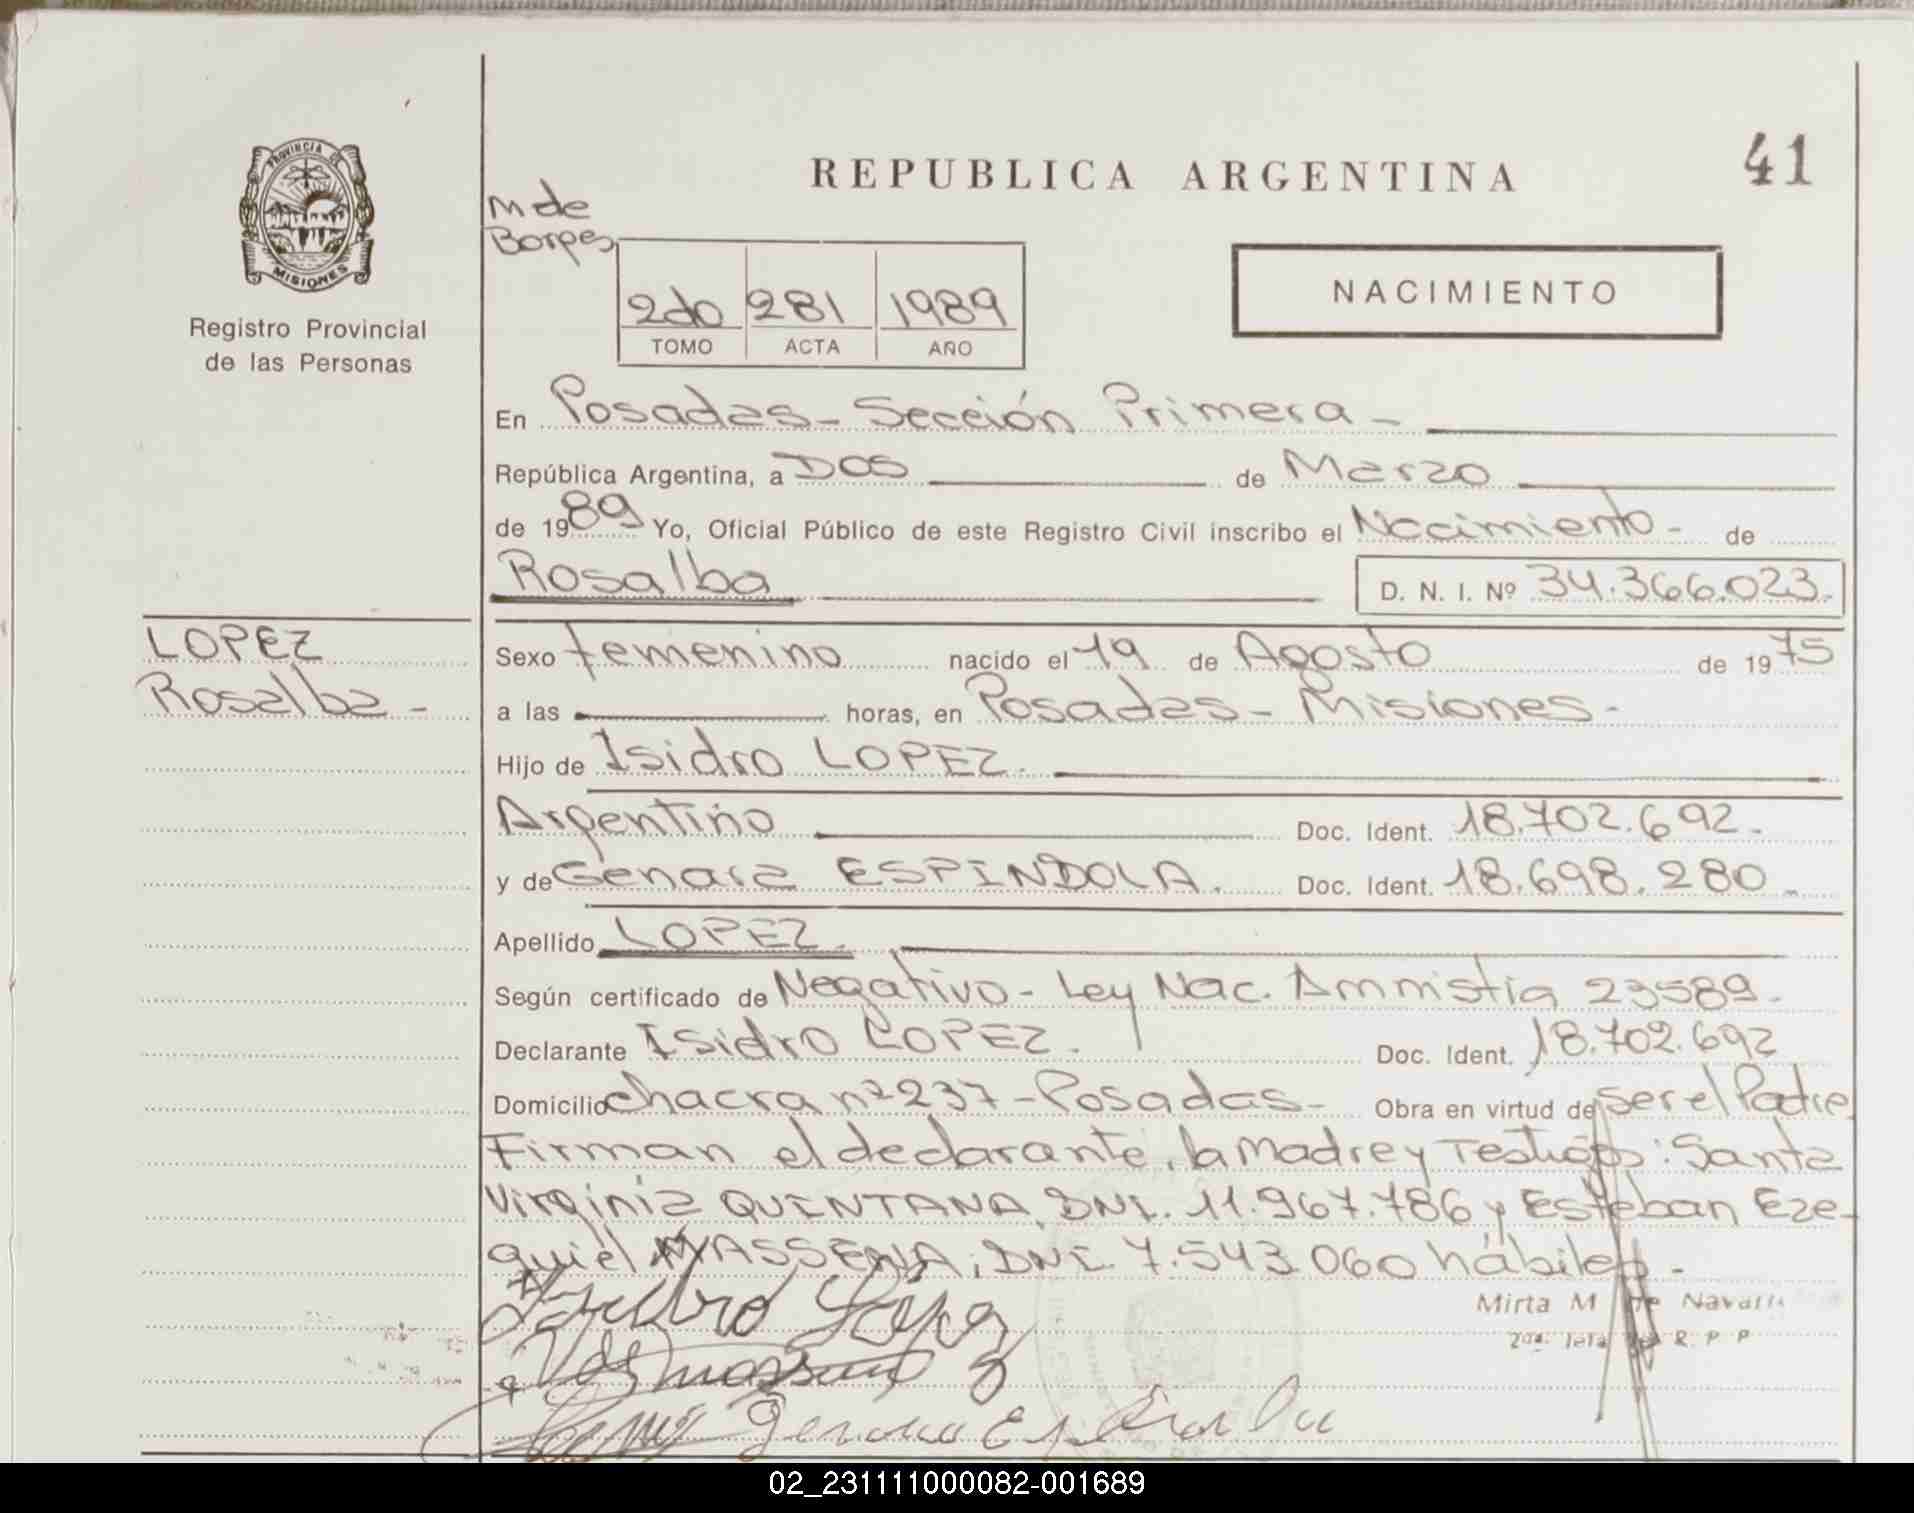 REPUBLICA ARGENTINA
41
PROVINCIA DE
MISIONES
Registro Provincial
de las Personas
M de
Borges
2do 281 1989
TOMO ACTA AÑO
NACIMIENTO
En Posadas - Sección Primera -
República Argentina, a DOS de Marzo
de 1989 Yo, Oficial Público de este Registro Civil inscribo el Nacimiento - de
Rosalba D. N. I. Nº 34.366.023.
LOPEZ
Rosalba -
Sexo femenino nacido el 19 de Agosto de 1975
a las horas, en Posadas - Misiones -
Hijo de Isidro LOPEZ.
Argentino Doc. Ident. 18.702.692.
y de Genara ESPINDOLA. Doc. Ident. 18.698.280.
Apellido LOPEZ.
Según certificado de Negativo - Ley Nac. Ammistia 23589.
Declarante Isidro LOPEZ. Doc. Ident. 18.702.692
Domicilio chacra nº 237 - Posadas - Obra en virtud de ser el Padre
Firman el declarante, la madre y Testigos: Santa
Virginia QUINTANA, DNI. 11.967.786 y Esteban Eze-
quiel MASSENA, DNI. 7.543.060 hábiles -
Mirta M de
2da. Jefa R. P. P
Lopez
Genara
02_231111000082-001689